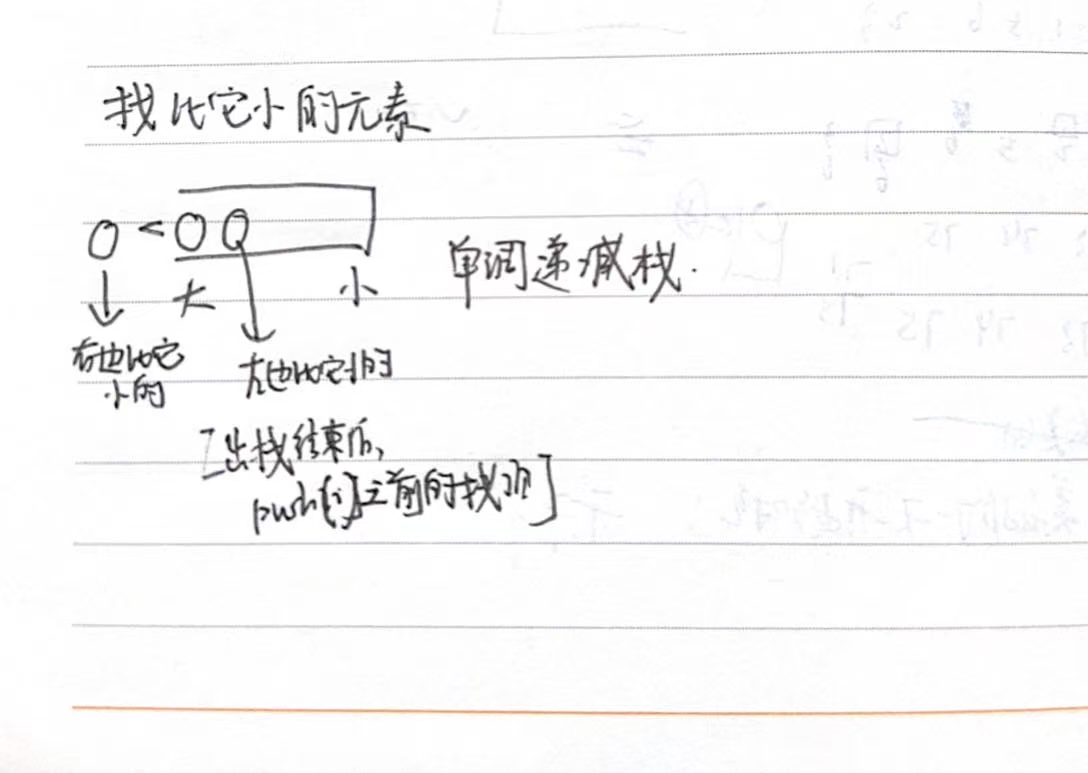 找比它小的元素
O < O O
大 小
单调递减栈.
右边比它
小的
左边比它小的
[出栈结束后,
push[i]之前的栈顶]